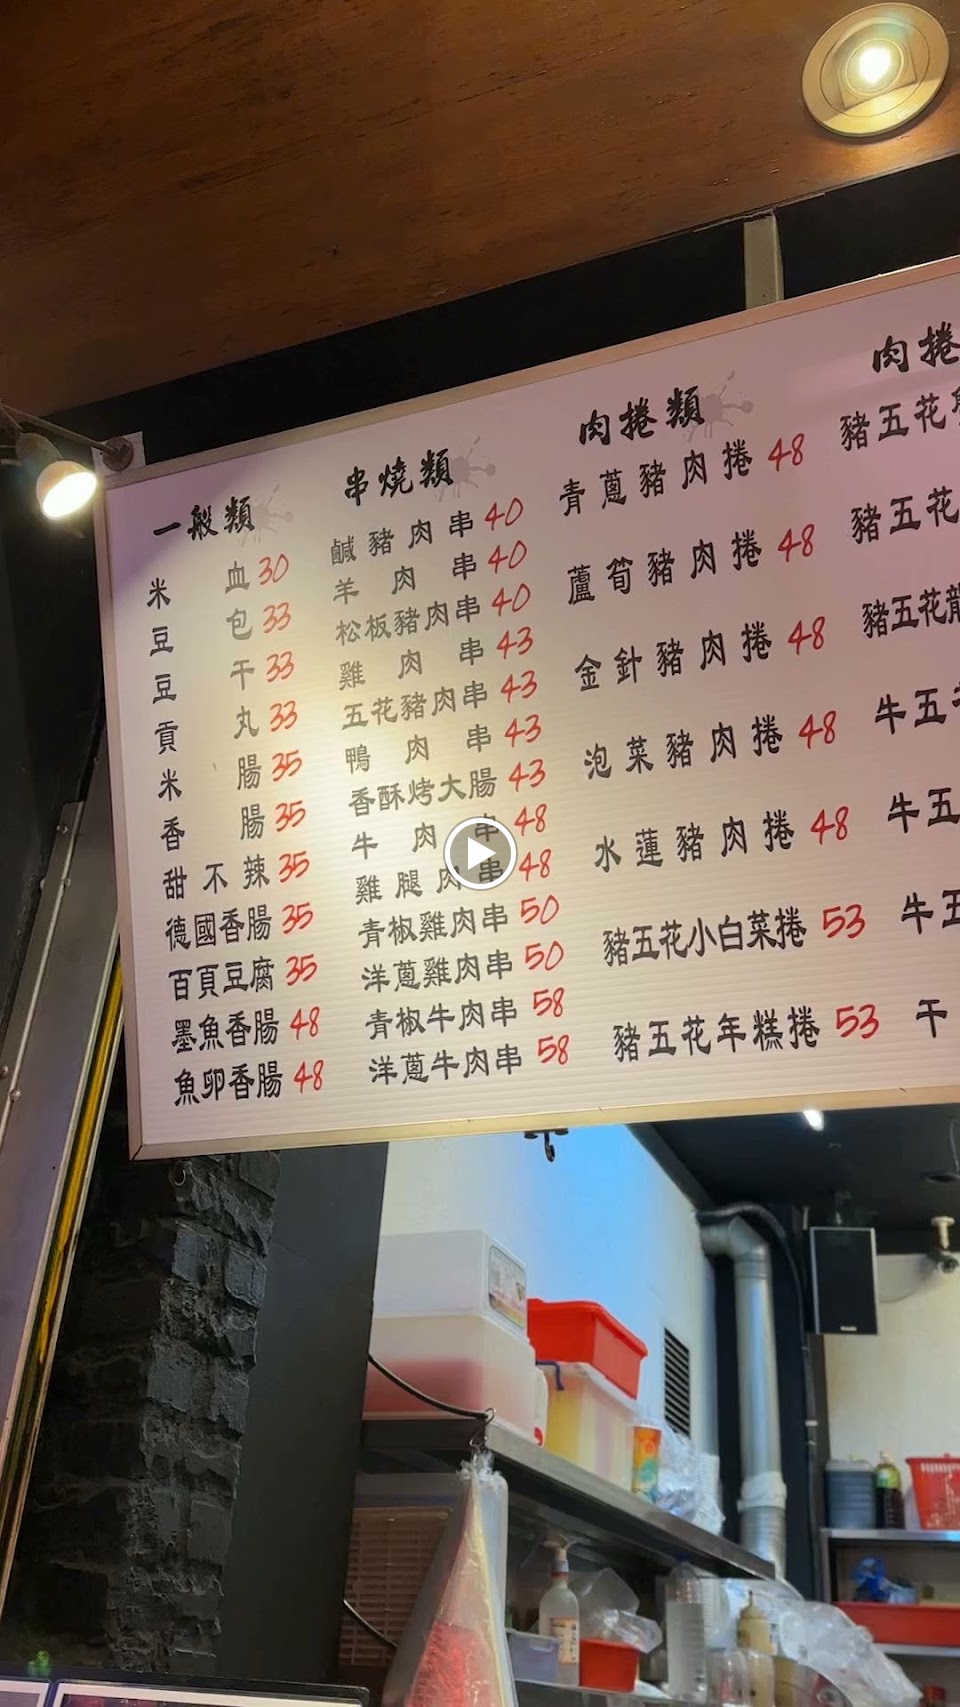 一般類
米血 30
豆包 33
豆干 33
貢丸 33
米腸 35
香腸 35
甜不辣 35
德國香腸 35
百頁豆腐 35
墨魚香腸 48
魚卵香腸 48
串燒類
鹹豬肉串 40
羊肉串 40
松板豬肉串 40
雞肉串 43
五花豬肉串 43
鴨肉串 43
香酥烤大腸 43
牛肉串 48
雞腿肉串 48
青椒雞肉串 50
洋蔥雞肉串 50
青椒牛肉串 58
洋蔥牛肉串 58
肉捲類
青蔥豬肉捲 48
蘆筍豬肉捲 48
金針豬肉捲 48
泡菜豬肉捲 48
水蓮豬肉捲 48
豬五花小白菜捲 53
豬五花年糕捲 53
肉捲
豬五花
豬五花
豬五花龍
牛五
牛五
牛五
干